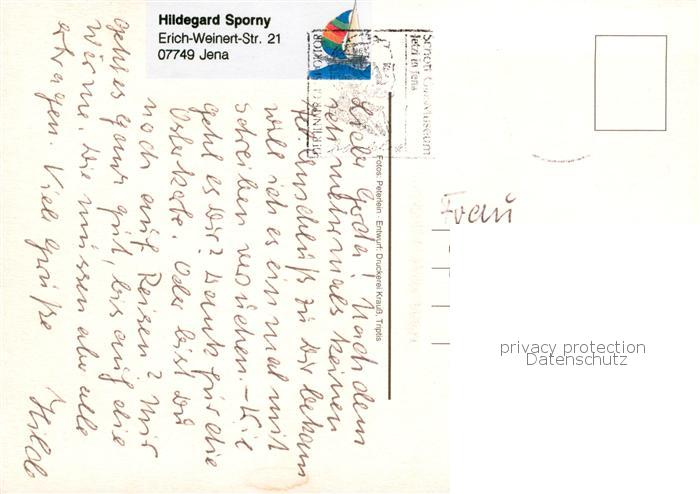 Hildegard Sporny
Erich-Weinert-Str. 21
07749 Jena
Liebe Gerda! Nachdem
ich mehrmals keinen
Tel. anschluß zu Dir bekam
will ich es einmal mit
schreiben versuchen. – Wie
geht es Dir? Dank für die
Osterkarte. Oder bist Du
noch auf Reisen? Mir
geht es ganz gut, bis auf die
Wärme. Die müssen aber alle
ertragen. Viele Grüße
Hilde
Fotos: Peterlein · Entwurf: Druckerei Krauß, Triptis
jetzt in Jena
Frau
privacy protection
Datenschutz